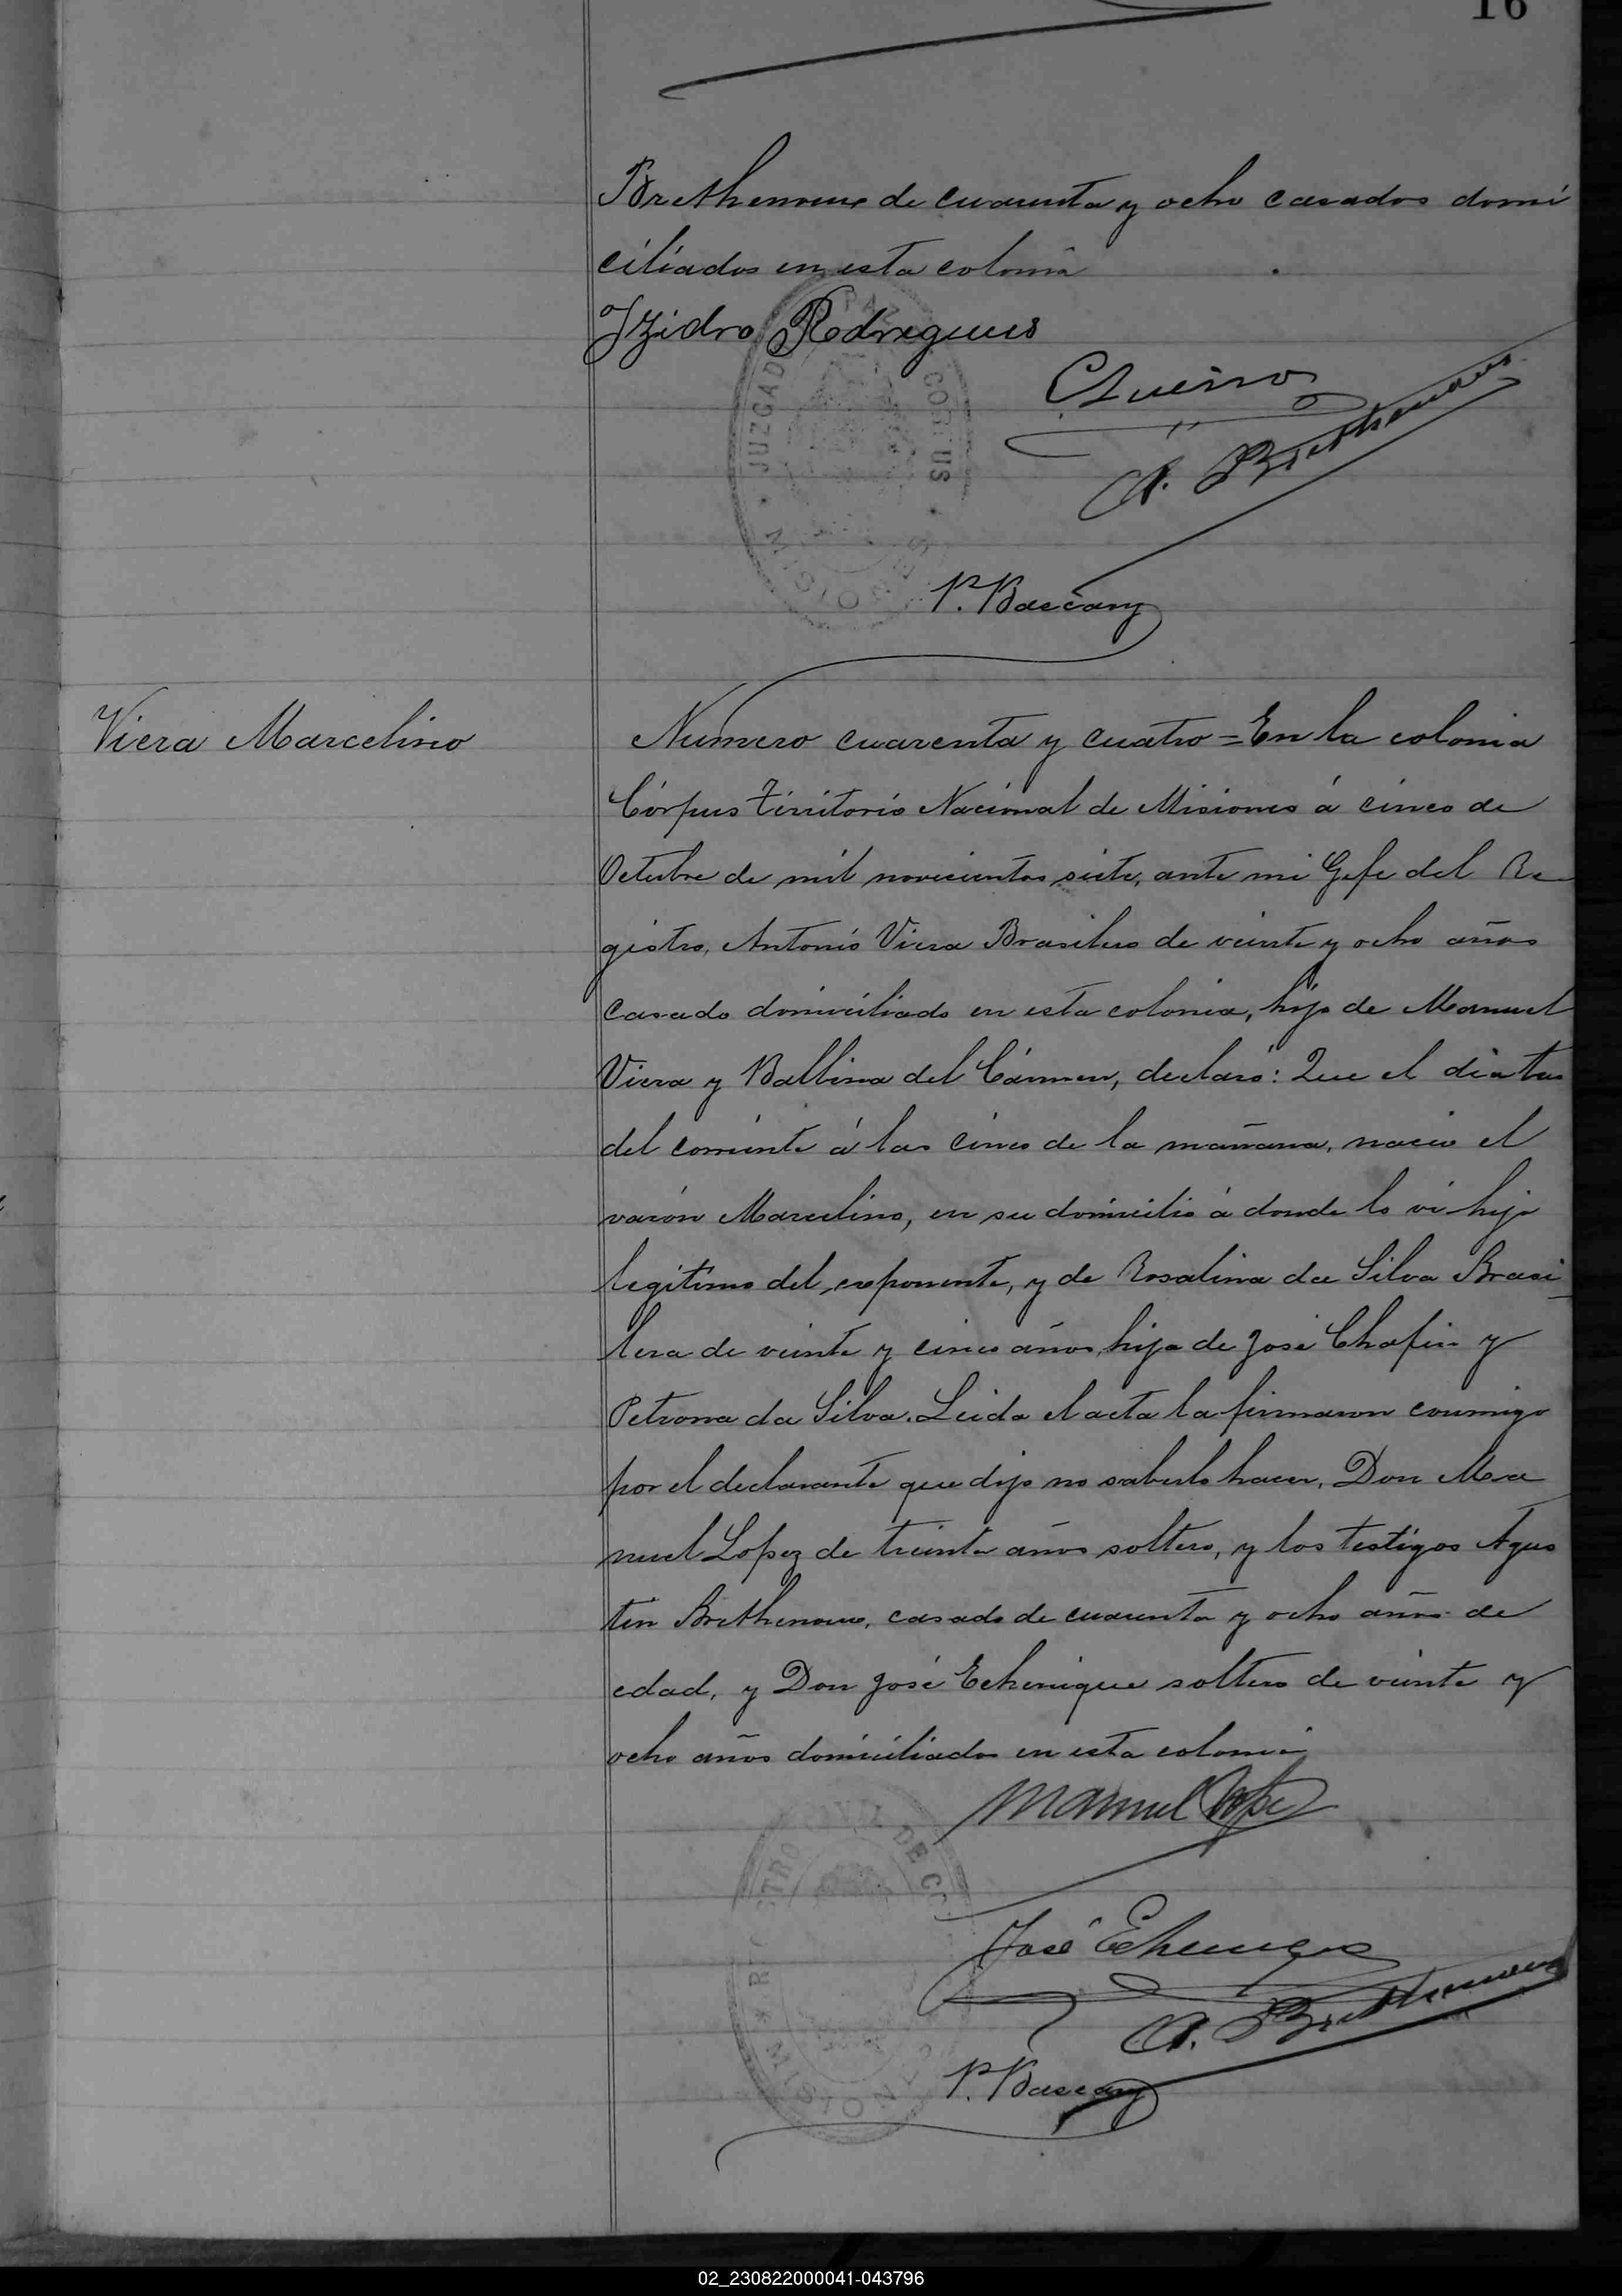 16
Brethenoux de cuarenta y ocho casados domi
ciliados en esta colonia
Izidro Rodregues
JUZGADO PAZ CORPUS
MISIONES
A. Brethenoux
P. Bascary
Viera Marcelino
Numero cuarenta y cuatro = En la colonia
Córpus Territorio Nacional de Misiones á cinco de
Octubre de mil novecientos siete, ante mi Gefe del Re
gistro, Antonio Viera Brasilero de veinte y ocho años
casado domiciliado en esta colonia, hijo de Manuel
Viera y Balbina del Cármen, declaró: Que el dia tres
del corriente á las cinco de la mañana, nacio el
varón Marcelino, en su domicilio á donde lo ví hijo
legitimo del exponente, y de Rosalina da Silva Brasi
lera de veinte y cinco años, hija de José Chafin y
Petrona da Silva. Leida el acta la firmaron conmigo
por el declarante que dijo no saberlo hacer, Don Ma
nuel Lopez de treinta años soltero, y los testigos Agus
tin Brethenoux, casado de cuarenta y ocho años de
edad, y Don José Echenique soltero de veinte y
ocho años domiciliados en esta colonia
Manuel Lopez
DE
MISIONES
José Echenique
A. Brethenoux
P. Bascary
02_230822000041-043796